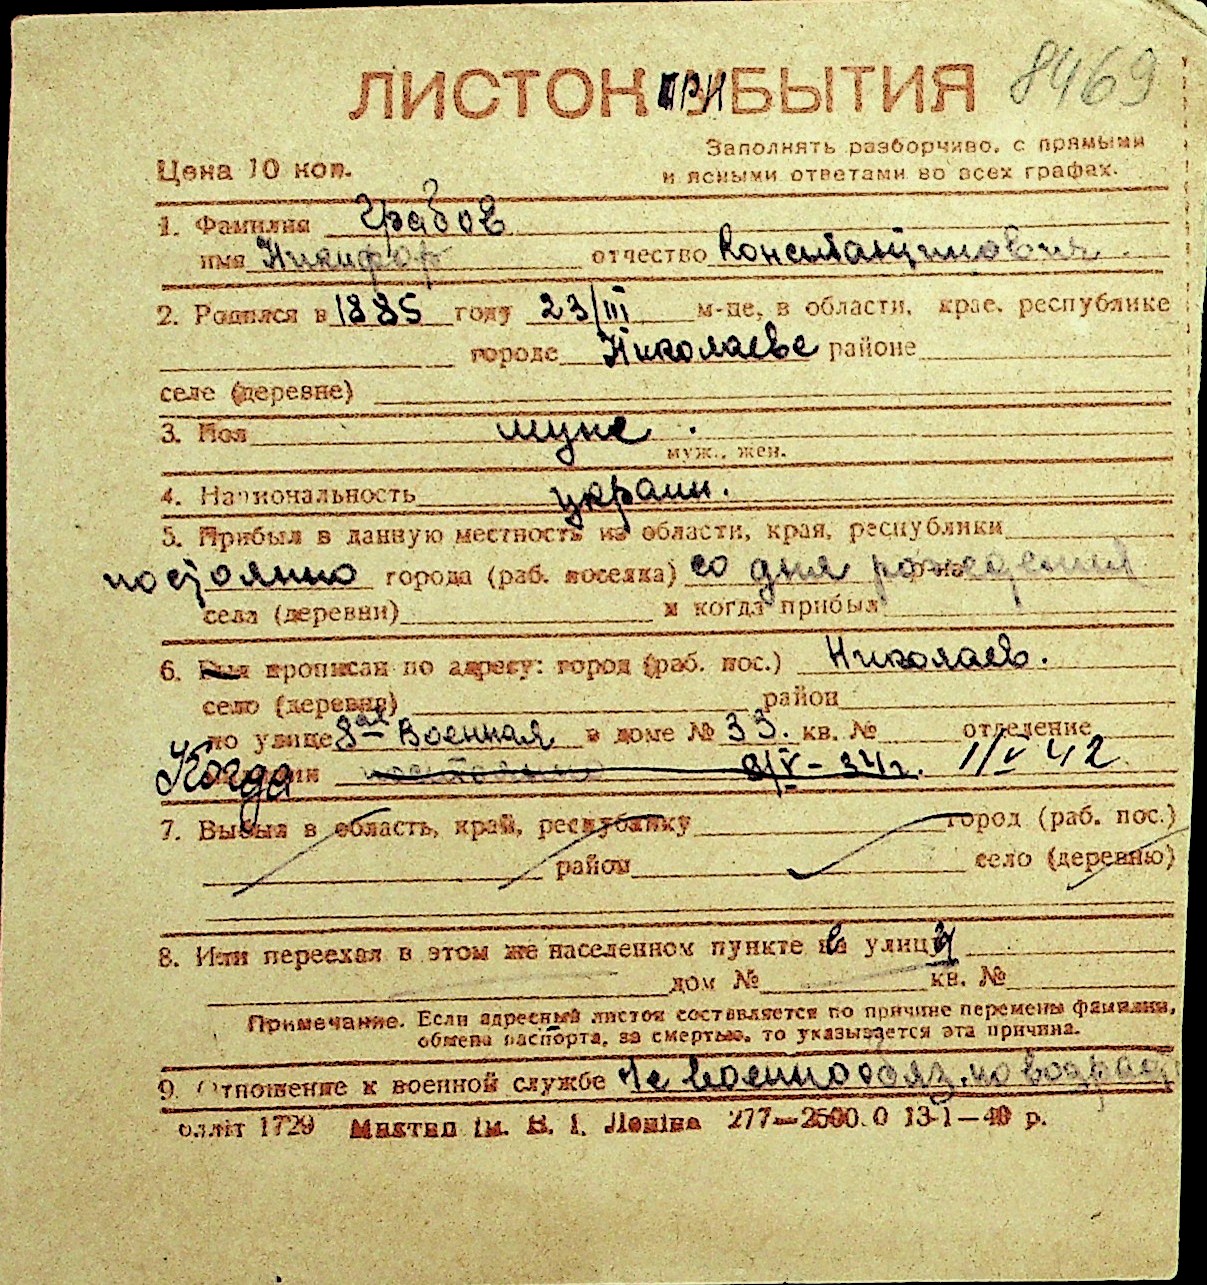 8469
ЛИСТОК ПРИБЫТИЯ
Заполнять разборчиво, с прямыми
Цена 10 коп.
и ясными ответами во всех графах.
1. Фамилия Грабов
имя Никифор отчество Константинович
2. Родился в 1885 году 23/III м-це, в области, крае, республике
городе Николаеве районе
селе (деревне)
3. Пол муже.
муж., жен.
4. Национальность украин.
5. Прибыл в данную местность из области, края, республики
постоянно города (раб. поселка) со дня рождения
села (деревни) и когда прибыл
6. Был прописан по адресу: город (раб. пос.) Николаев.
село (деревня) район
по улице 8ая Военная в доме № 33. кв. № отделение
Когда постоянно 8/V-34г. 1/V 42
7. Выбыл в область, край, республику город (раб. пос.)
район село (деревню)
8. Или переехал в этом же населенном пункте в улицу
дом № кв. №
Примечание. Если адресный листок составляется по причине перемены фамилии,
обмена паспорта, за смертью, то указывается эта причина.
9. Отношение к военной службе Не военнообяз. по возраст
олліт 1729 Миктип ім. В. І. Леніна 277—2500.0 13-1—40 р.